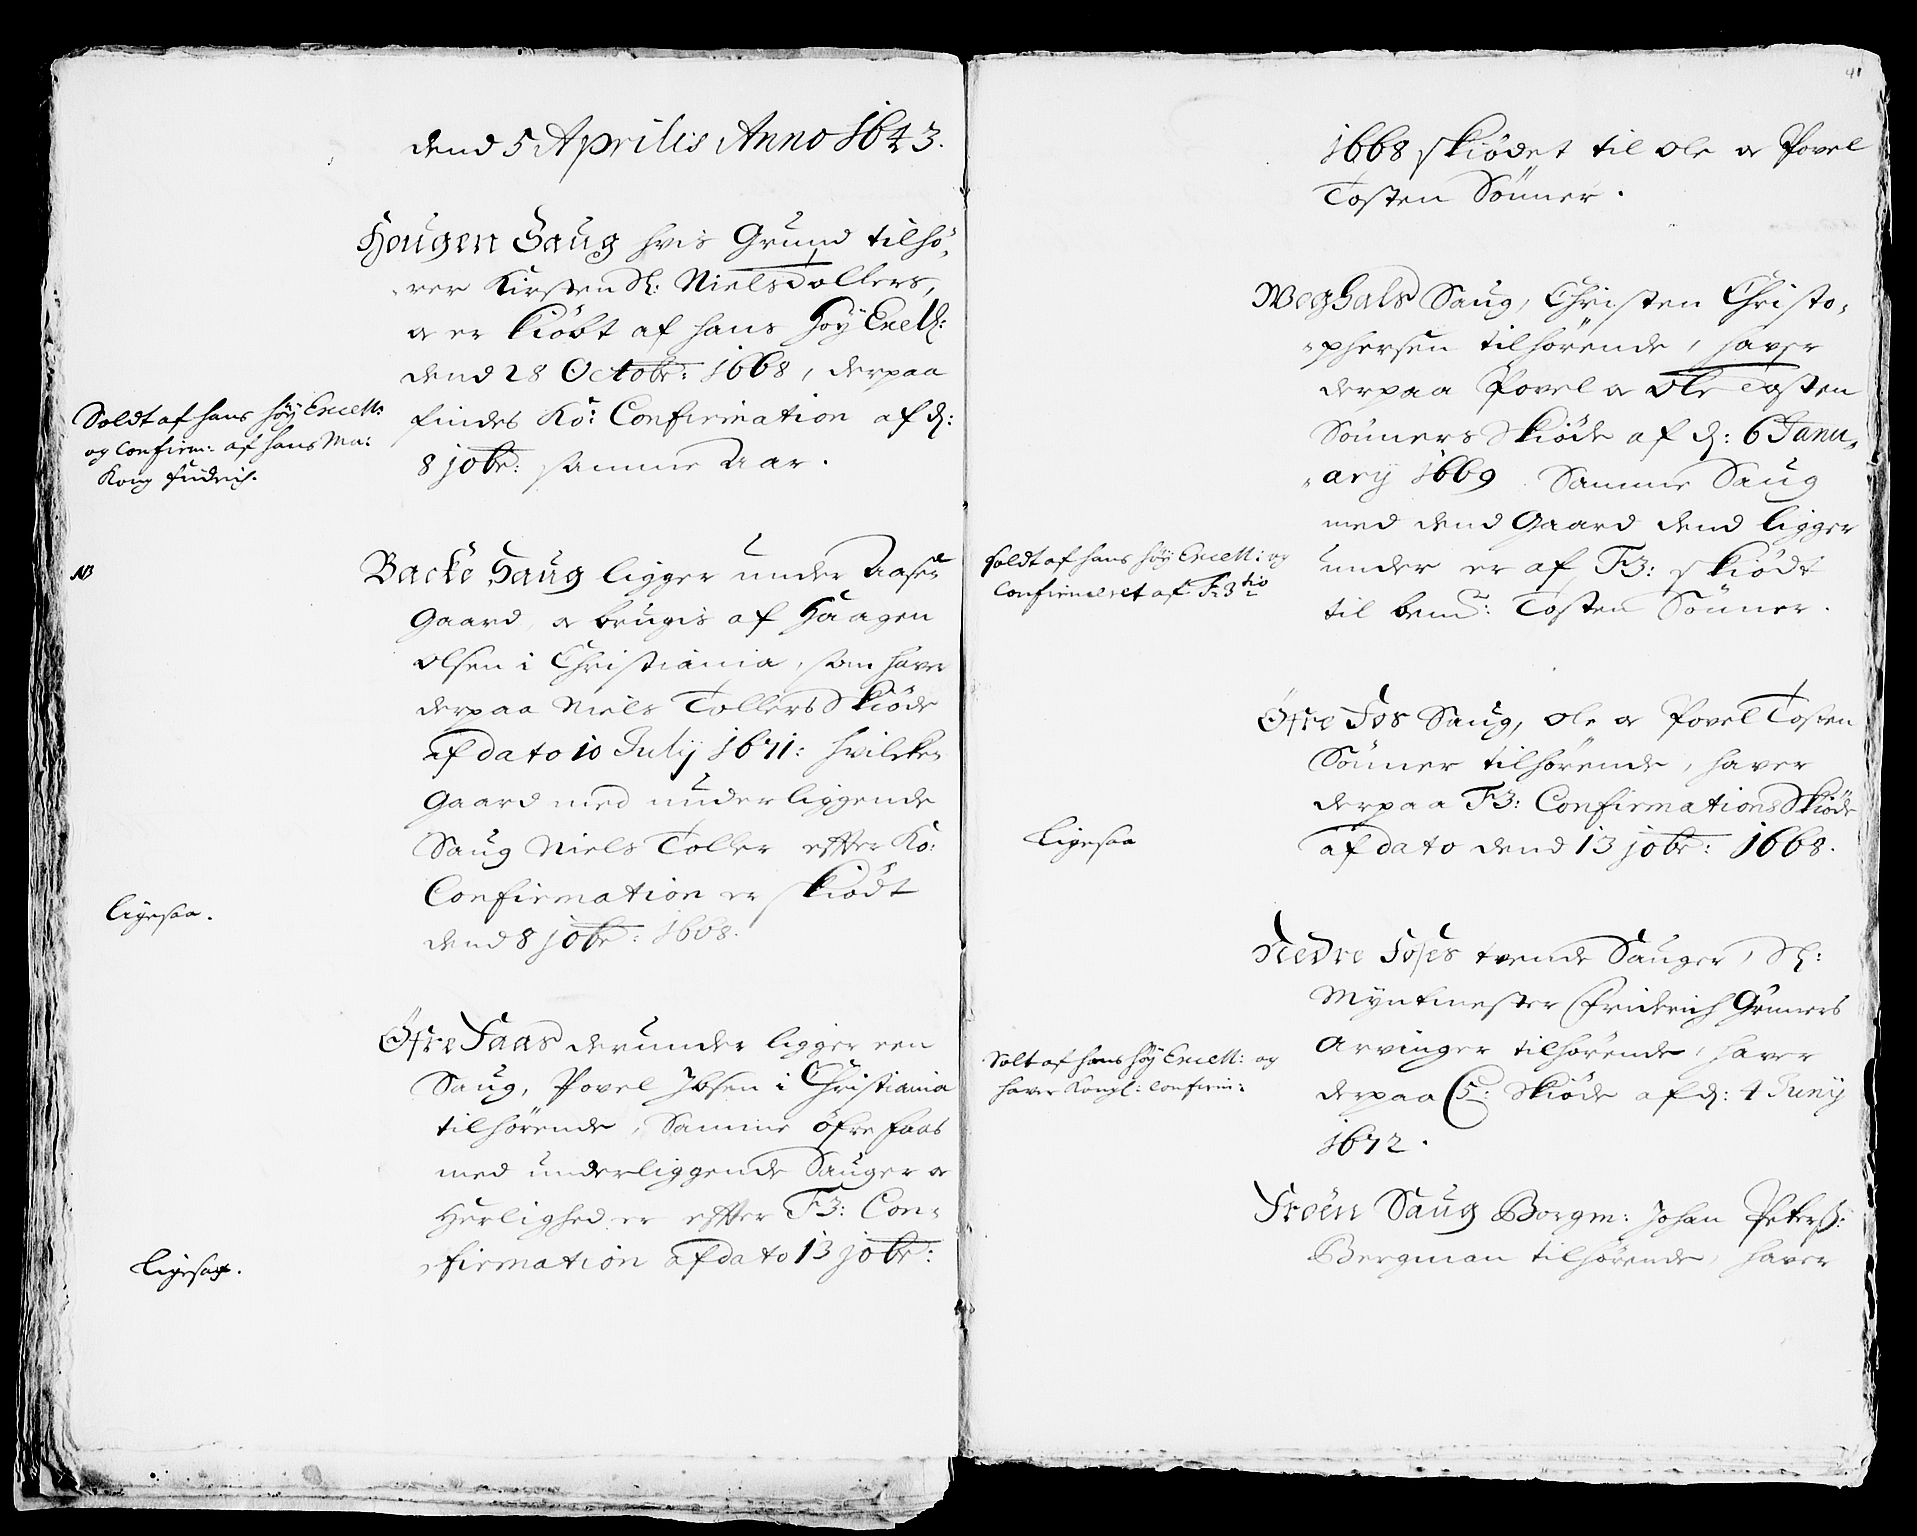 dend 5 Aprilis Anno 1643.
Hougen Saug hvis Grund tilhö,
,rer Kirsten Sl: Niels Tollers,
og er kiöbt af hans höy Excell:
dend 28 Octobr: 1668, derpaa
findes Ko: Confirmation af d:
8 jobr: samme Aar.
Soldt af hans höy Excell:
og Confirm: af hans Ma:
Kong fridrich.
NB
Backe Saug ligger under Aasen
Gaard, og brugis af Haagen
Olsen i Christiania, som haver
derpaa Niels Tollers Skiöde
af dato 10 July 1671: hvilcken
Gaard med underliggende
Saug Niels Toller effter Ko:
Confirmation er skiödt
dend 8 jobr: 1668.
ligesaa.
Öfre Faas derunder ligger een
Saug, Povel Ibsen i Christiania
tilhörende, Samme öfre faas
med underliggende Sauger og
Herlighed er effter F3: Con,
,firmation af dato 13 jobr:
ligesaa.
41
1668 skiödet til Ole og Povel
Tosten Sönner.
Weghals Saug, Christen Christo,
,phersen tilhörende, haver
derpaa Povel og Ole Tosten
Sönners Skiöde af d: 6 Janu,
,ary 1669. Samme Saug
med dend Gaard dend ligger
under er af F3: skiödt
til bemte: Tosten Sönner.
soldt af hans höy Excell: og
Confirmeret af F: 3tio
Öfre Fos Saug, Ole og Povel Tosten
Sönner tilhörende, haver
derpaa F3: Confirmations Skiöde
af dato dend 13 jobr: 1668.
ligesaa
Nedre Foses tvende Sauger, Sl:
Myntmester Friderich Gruners
Arvinger tilhörende, haver
derpaa C5: Skiöde af d: 4 Juny
1672.
Solt af hans höy Excell: og
haver Kongl: Confirm:
Froen Saug Borgm: Johan Peterß:
Bergman tilhörende, haver